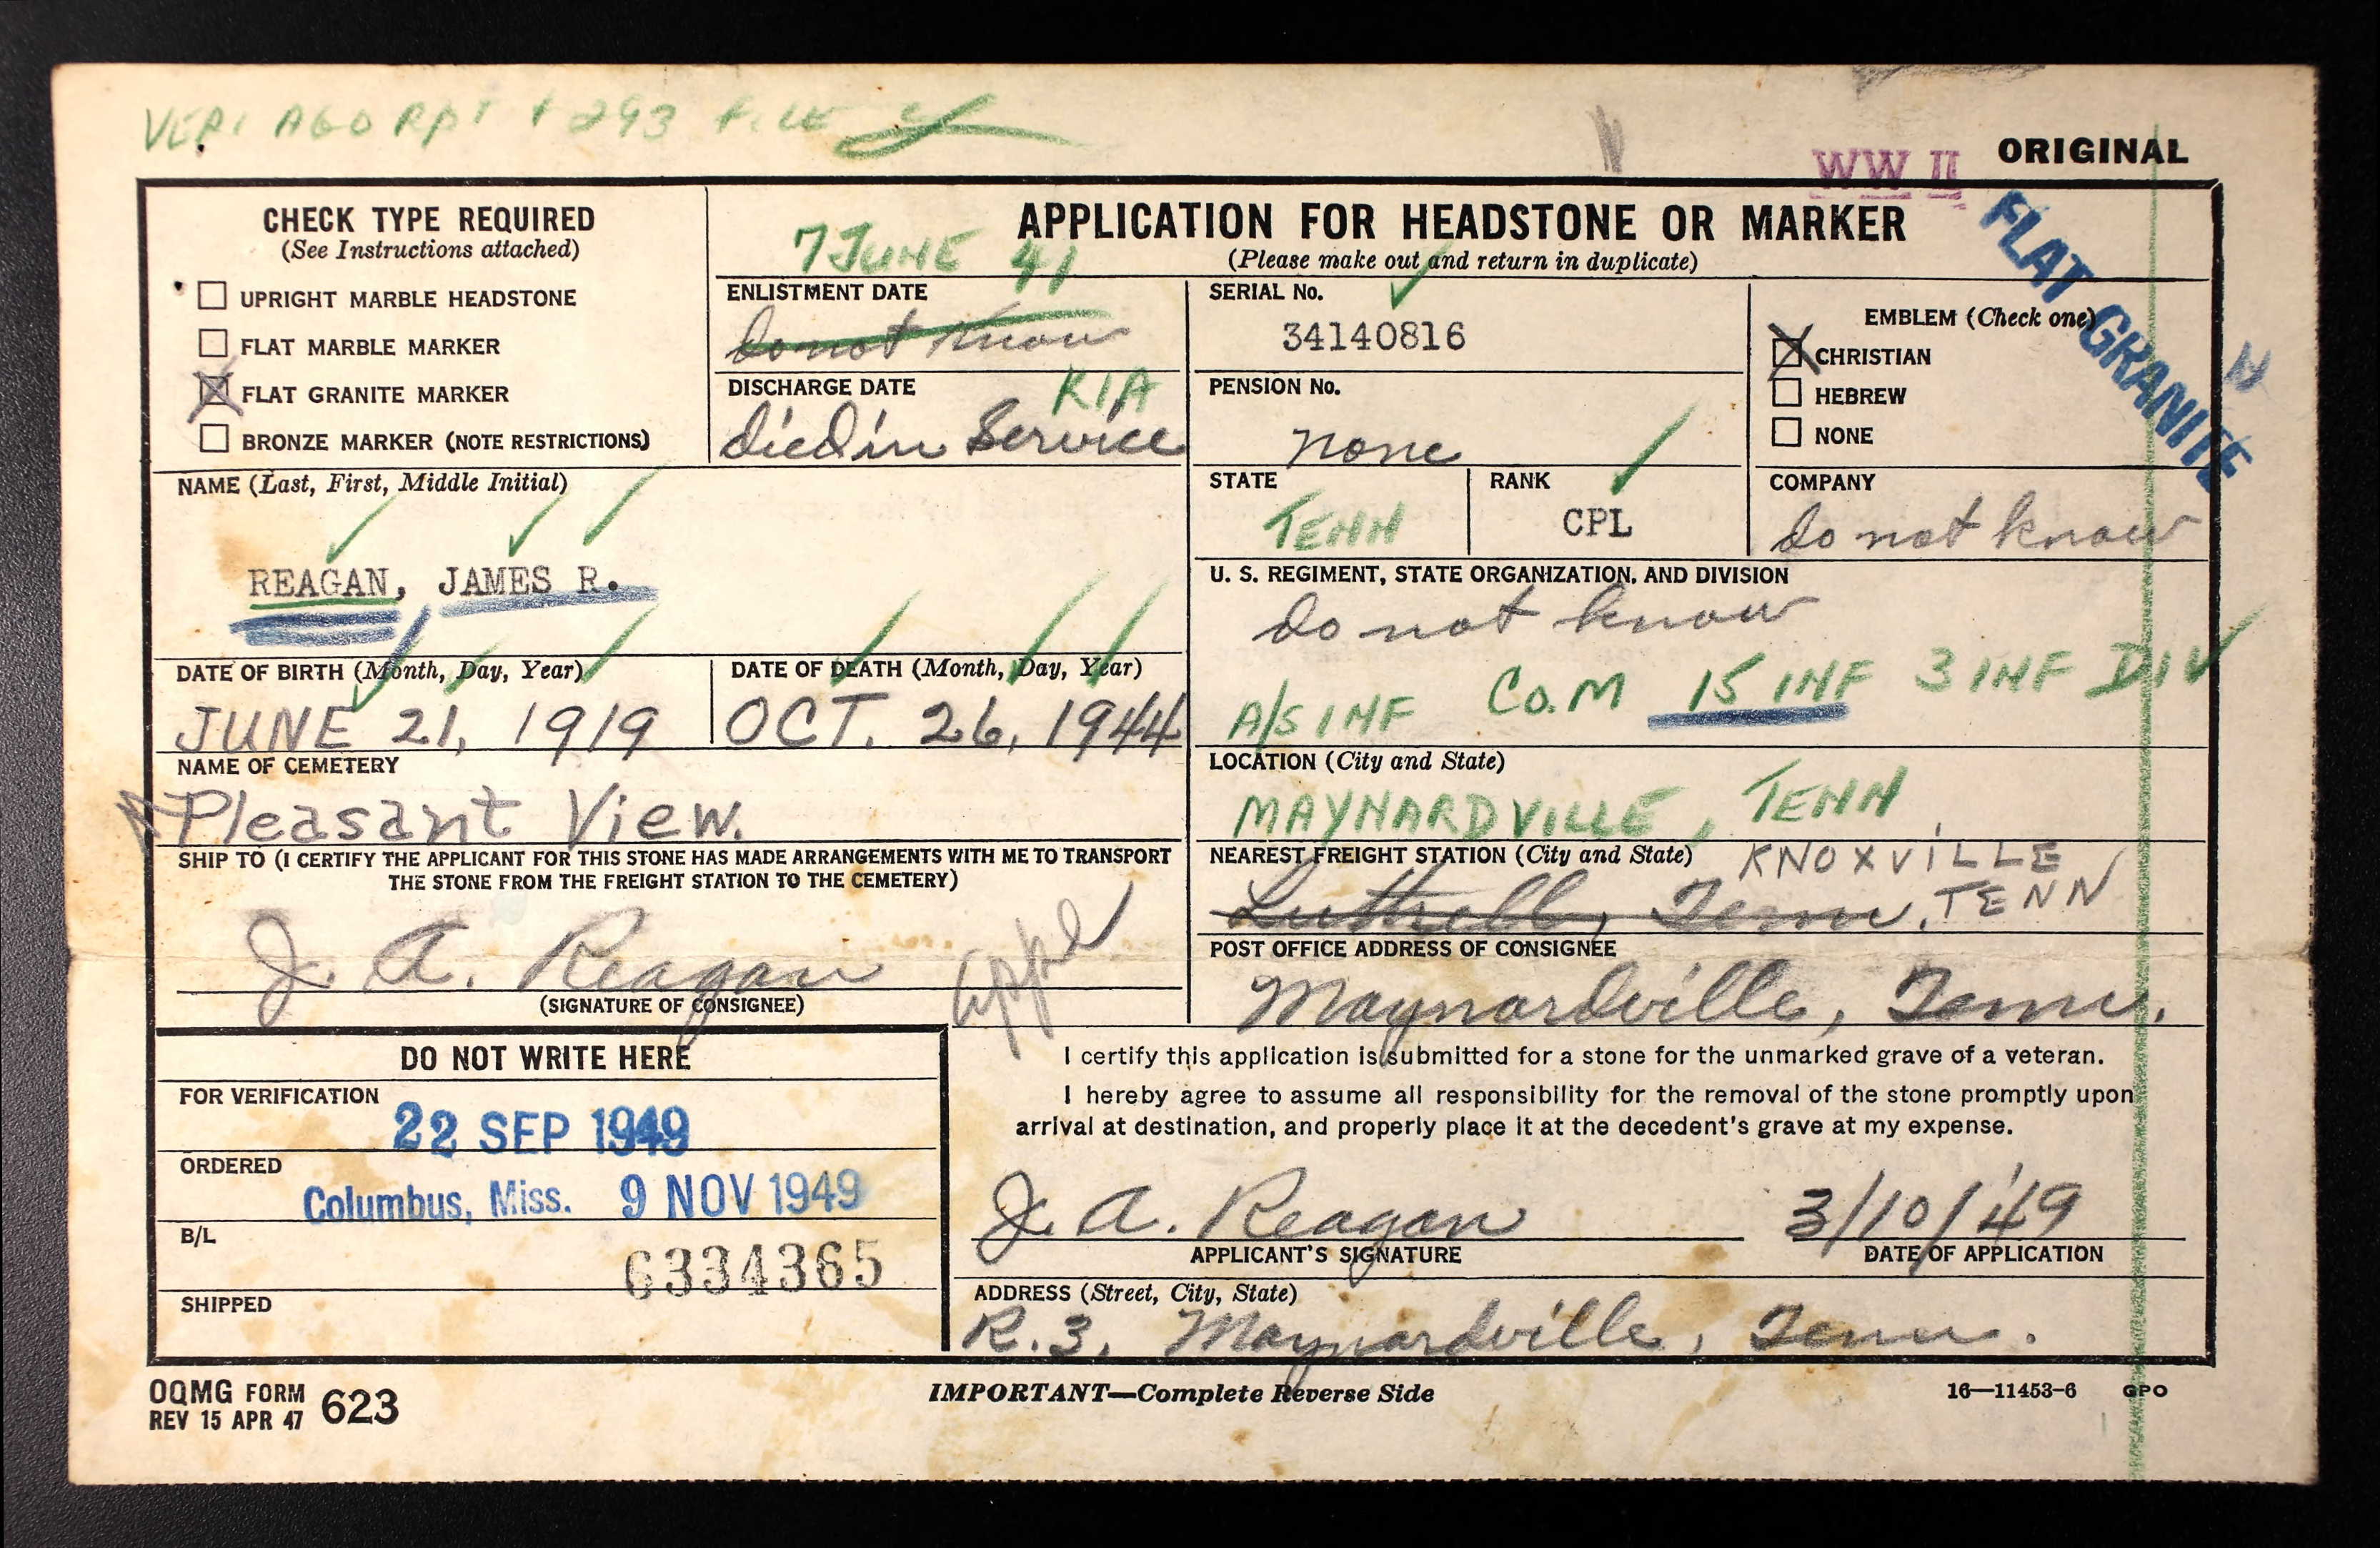 VERI AGO RPT + 293 FILE
WW II
ORIGINAL
CHECK TYPE REQUIRED
(See Instructions attached)
UPRIGHT MARBLE HEADSTONE
FLAT MARBLE MARKER
FLAT GRANITE MARKER
BRONZE MARKER (NOTE RESTRICTIONS)
APPLICATION FOR HEADSTONE OR MARKER
(Please make out and return in duplicate)
FLAT GRANITE
7 JUNE 41
ENLISTMENT DATE
do not know
DISCHARGE DATE
KIA
died in Service
SERIAL No.
34140816
PENSION No.
none
EMBLEM (Check one)
CHRISTIAN
HEBREW
NONE
NAME (Last, First, Middle Initial)
REAGAN, JAMES R.
STATE
TENN
RANK
CPL
COMPANY
do not know
U. S. REGIMENT, STATE ORGANIZATION, AND DIVISION
do not know
A/S INF Co. M 15 INF 3 INF DIV
DATE OF BIRTH (Month, Day, Year)
JUNE 21, 1919
DATE OF DEATH (Month, Day, Year)
OCT. 26, 1944
NAME OF CEMETERY
Pleasant View.
LOCATION (City and State)
MAYNARDVILLE, TENN
SHIP TO (I CERTIFY THE APPLICANT FOR THIS STONE HAS MADE ARRANGEMENTS WITH ME TO TRANSPORT
THE STONE FROM THE FREIGHT STATION TO THE CEMETERY)
J. A. Reagan
appl
(SIGNATURE OF CONSIGNEE)
NEAREST FREIGHT STATION (City and State)
KNOXVILLE
Luttrell, Tenn. TENN
POST OFFICE ADDRESS OF CONSIGNEE
Maynardville, Tenn.
DO NOT WRITE HERE
FOR VERIFICATION
22 SEP 1949
ORDERED
Columbus, Miss. 9 NOV 1949
B/L
6334365
SHIPPED
I certify this application is submitted for a stone for the unmarked grave of a veteran.
I hereby agree to assume all responsibility for the removal of the stone promptly upon
arrival at destination, and properly place it at the decedent's grave at my expense.
J. A. Reagan 3/10/49
APPLICANT'S SIGNATURE DATE OF APPLICATION
ADDRESS (Street, City, State)
R. 3, Maynardville, Tenn.
OQMG FORM 623
REV 15 APR 47
IMPORTANT—Complete Reverse Side
16—11453-6 GPO